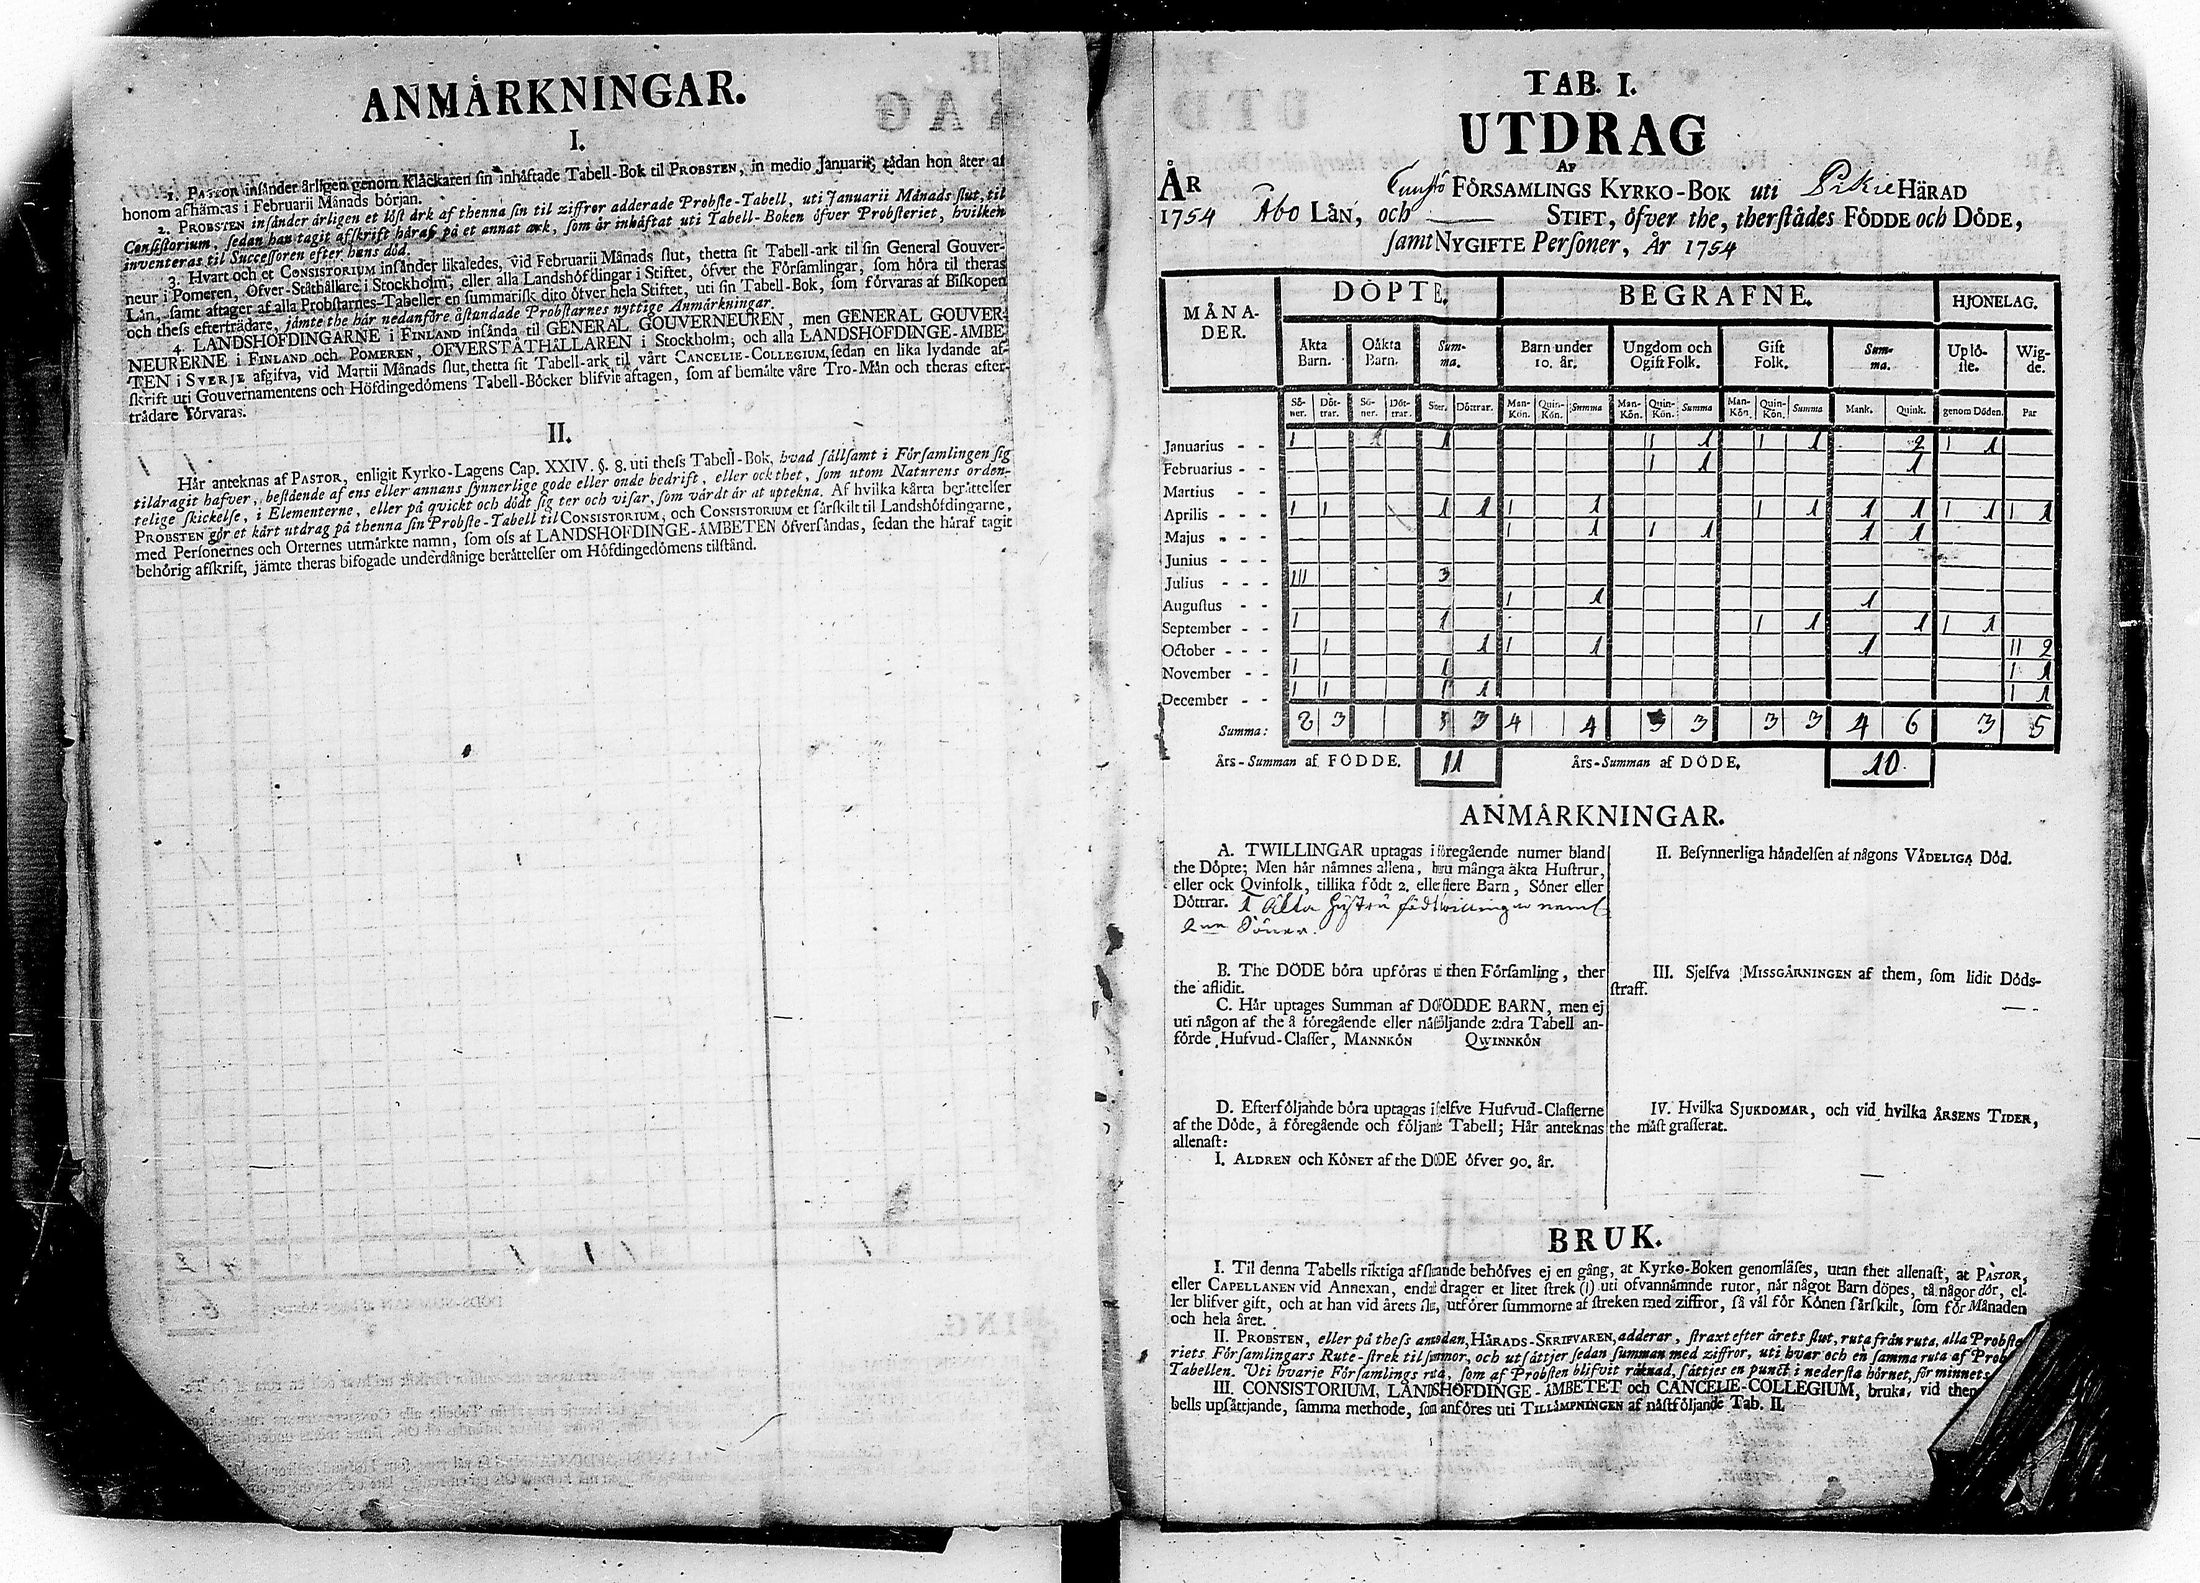 ANMÅRKNINGAR.
I.
1. PASTOR insånder årligen genom Klåckaren sin inhåftade Tabell-Bok til PROBSTEN, in medio Januarii, sådan hon åter af
honom afhåmtas i Februarii Månads början.
2. PROBSTEN insånder årligen et löst årk af thenna sin til ziffror adderade Probste-Tabell, uti Januarii Månads slut, til
Consistorium, sedan han tagit afskrift håraf på et annat ark, som år inhåftat uti Tabell-Boken öfver Probsteriet, hvilken
inventeras til Successoren efter hans död.
3. Hvart och et CONSISTORIUM insånder likaledes, vid Februarii Månads slut, thetta sit Tabell-ark til sin General Gouver-
neur i Pomeren, Öfver-Ståthållare i Stockholm, eller alla Landshöfdingar i Stiftet, öfver the Församlingar, som höra til theras
Lån, samt aftager af alla Probstarnes-Tabeller en summarisk dito öfver hela Stiftet, uti sin Tabell-Bok, som förvaras af Biskopen
och thess eftertrådare, jåmte the hår nedanföre åstundade Probstarnes nyttige Anmårkningar.
4. LANDSHÖFDINGARNE i FINLAND insånda til GENERAL GOUVERNEUREN, men GENERAL GOUVER-
NEURERNE i FINLAND och POMEREN, ÖFVERSTÅTHÅLLAREN i Stockholm; och alla LANDSHÖFDINGE-ÅMBE-
TEN i SVERJE afgifva, vid Martii Månads slut, thetta sit Tabell-ark til vårt CANCELIE-COLLEGIUM, sedan en lika lydande af-
skrift uti Gouvernamentens och Höfdingedömens Tabell-Böcker blifvit aftagen, som af bemålte våre Tro-Mån och theras efter-
trådare förvaras.
II.
Hår anteknas af PASTOR, enligit Kyrko-Lagens Cap. XXIV. §. 8. uti thess Tabell-Bok, hvad sållsamt i Församlingen sig
tildragit hafver, bestående af ens eller annans synnerlige gode eller onde bedrift, eller ock thet, som utom Naturens orden-
telige skickelse, i Elementerne, eller på qvickt och dödt sig ter och visar, som vårdt år at uptekna. Af hvilka kårta beråttelser
PROBSTEN gör et kårt utdrag på thenna sin Probste-Tabell til CONSISTORIUM, och CONSISTORIUM et sårskilt til Landshöfdingarne,
med Personernes och Orternes utmårkte namn, som oss af LANDSHÖFDINGE-ÅMBETEN öfversåndas, sedan the håraf tagit
behörig afskrift, jåmte theras bifogade underdånige beråttelser om Höfdingedömens tilstånd.
TAB. I.
UTDRAG
AF
ÅR FÖRSAMLINGS KYRKO-BOK uti Pikie HÄRAD
1754 Åbo LÄN, och — STIFT, öfver the, therstådes FÖDDE och DÖDE,
samt NYGIFTE Personer, År 1754
MÅNA-
DER. DÖPTE. BEGRAFNE. HJONELAG.
Äkta Barn. Oäkta Barn. Summa. Barn under 10. år. Ungdom och Ogift Folk. Gift Folk. Summa. Uplöste. Wigde.
Sö-ner. Döt-trar. Sö-ner. Döt-trar. Söner. Döttrar. Man-Kön. Quin-Kön. Summa Man-Kön. Quin-Kön. Summa Man-Kön. Quin-Kön. Summa Mank. Quink. genom Döden. Par
Januarius - - I 1 II 1 I 1 2 I 1
Februarius - - I 1 1
Martius - -
Aprilis - - - I I 1 1 I 1 I 1 1 1 I 1 I 1
Majus - - - I 1 I 1 1 1
Junius - - -
Julius - - - III 3
Augustus - - I 1 1
September - - I 1 I 1 1 I 1
October - - - I 1 I 1 1 II 2
November - - I 1 I 1
December - - I I 1 1 I 1
Summa: 8 3 3 4 4 3 3 3 3 4 6 3 5
Års-Summan af FÖDDE. 11 Års-Summan af DÖDE. 10
ANMÅRKNINGAR.
A. TWILLINGAR uptagas i föregående numer bland
the Döpte; Men hår nåmnes allena, huru många åkta Hustrur,
eller ock Qvinfolk, tillika födt 2. eller flere Barn, Söner eller
Döttrar. 1 Äkta Hustru född twillingar neml.
Söner.
B. The DÖDE böra upföras uti then Församling, ther
the aflidit.
C. Hår uptages Summan af DÖDFÖDDE BARN, men ej
uti någon af the å föregående eller nåstföljande 2:dra Tabell an-
förde Hufvud-Classer, MANNKÖN QWINNKÖN
D. Efterföljande böra uptagas i sjelfve Hufvud-Classerne
af the Döde, å föregående och följande Tabell; Hår anteknas
allenast:
I. ÅLDREN och KÖNET af the DÖDE öfver 90. år.
II. Besynnerliga håndelsen af någons VÅDELIGA Död.
III. Sjelfva MISSGÅRNINGEN af them, som lidit Döds-
straff.
—
IV. Hvilka SJUKDOMAR, och vid hvilka ÅRSENS TIDER,
the måst grasserat.
—
BRUK.
I. Til denna Tabells riktiga afsåndande behöfves ej en gång, at Kyrko-Boken genomläses, utan thet allenast, at PASTOR,
eller CAPELLANEN vid Annexan, endast drager et litet strek (I) uti ofvannåmnde rutor, når något Barn döpes, tå någor dör, el-
ler blifver gift, och at han vid årets slut, utförer summorne af streken med ziffror, så vål för Könen sårskilt, som för Månaden
och hela året.
II. PROBSTEN, eller på thess anmodan, HÅRADS-SKRIFVAREN, adderar, straxt efter årets slut, ruta från ruta, alla Probste-
riets Församlingars Rute-strek til summor, och utsåttjer sedan summan med ziffror, uti hvar och en samma ruta af Prob
Tabellen. Uti hvarje Församlings ruta, som af Probsten blifvit råknad, såttjes en punct i nedersta hörnet, för minnets
III. CONSISTORIUM, LANDSHÖFDINGE-ÅMBETET och CANCELIE-COLLEGIUM, bruka, vid then
bells upsåttjande, samma methode, som anföres uti TILLÅMPNINGEN af nåstföljande Tab. II.